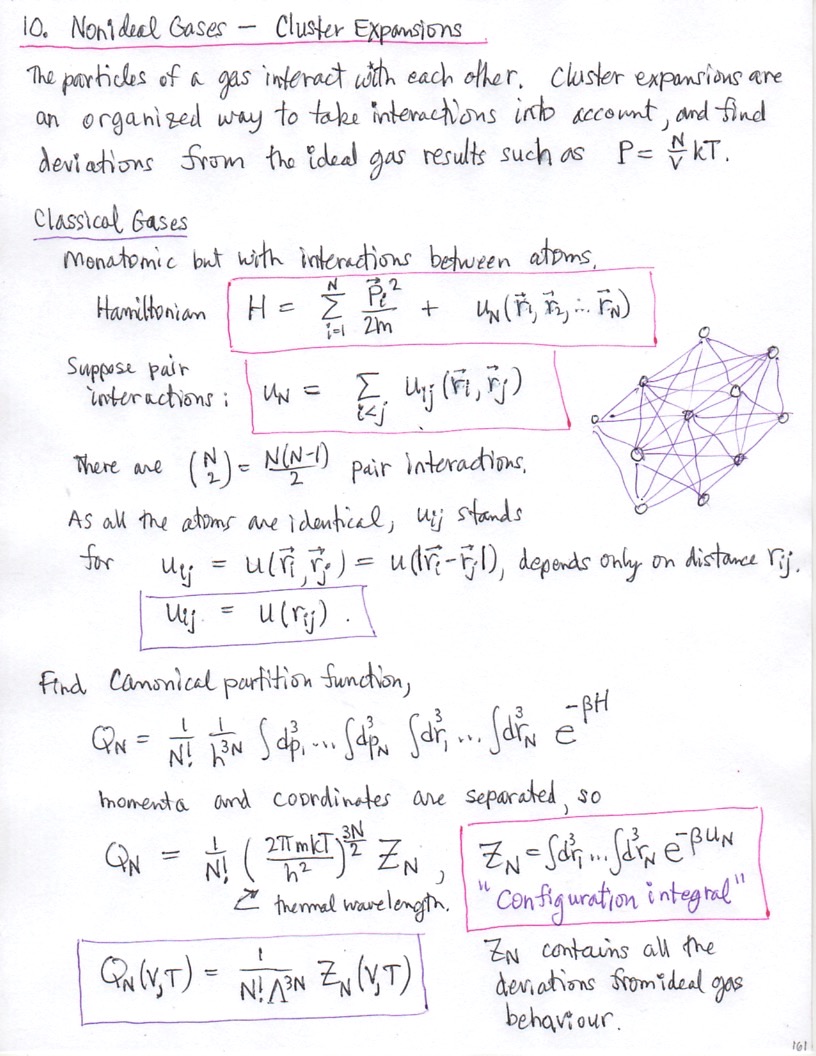 10. Nonideal Gases — Cluster Expansions
The particles of a gas interact with each other. Cluster expansions are
an organized way to take interactions into account, and find
deviations from the ideal gas results such as P = N/V kT.
Classical Gases
Monatomic but with interactions between atoms.
Hamiltonian H = ∑_{i=1}^{N} p⃗_i²/2m + u_N(r⃗_1, r⃗_2, ... r⃗_N)
Suppose pair
interactions: u_N = ∑_{i<j} u_ij(r⃗_i, r⃗_j)
There are (N 2) = N(N-1)/2 pair interactions.
As all the atoms are identical, u_ij stands
for u_ij = u(r⃗_i, r⃗_j) = u(|r⃗_i - r⃗_j|), depends only on distance r_ij.
u_ij = u(r_ij).
Find Canonical partition function,
Q_N = 1/N! 1/h^{3N} ∫d³p_1 ... ∫d³p_N ∫d³r_1 ... ∫d³r_N e^{-βH}
momenta and coordinates are separated, so
Q_N = 1/N! (2πmkT/h²)^{3N/2} Z_N, Z_N = ∫d³r_1 ... ∫d³r_N e^{-βu_N}
thermal wavelength. "Configuration integral"
Q_N(V,T) = 1/(N! Λ^{3N}) Z_N(V,T)
Z_N contains all the
deviations from ideal gas
behaviour.
161